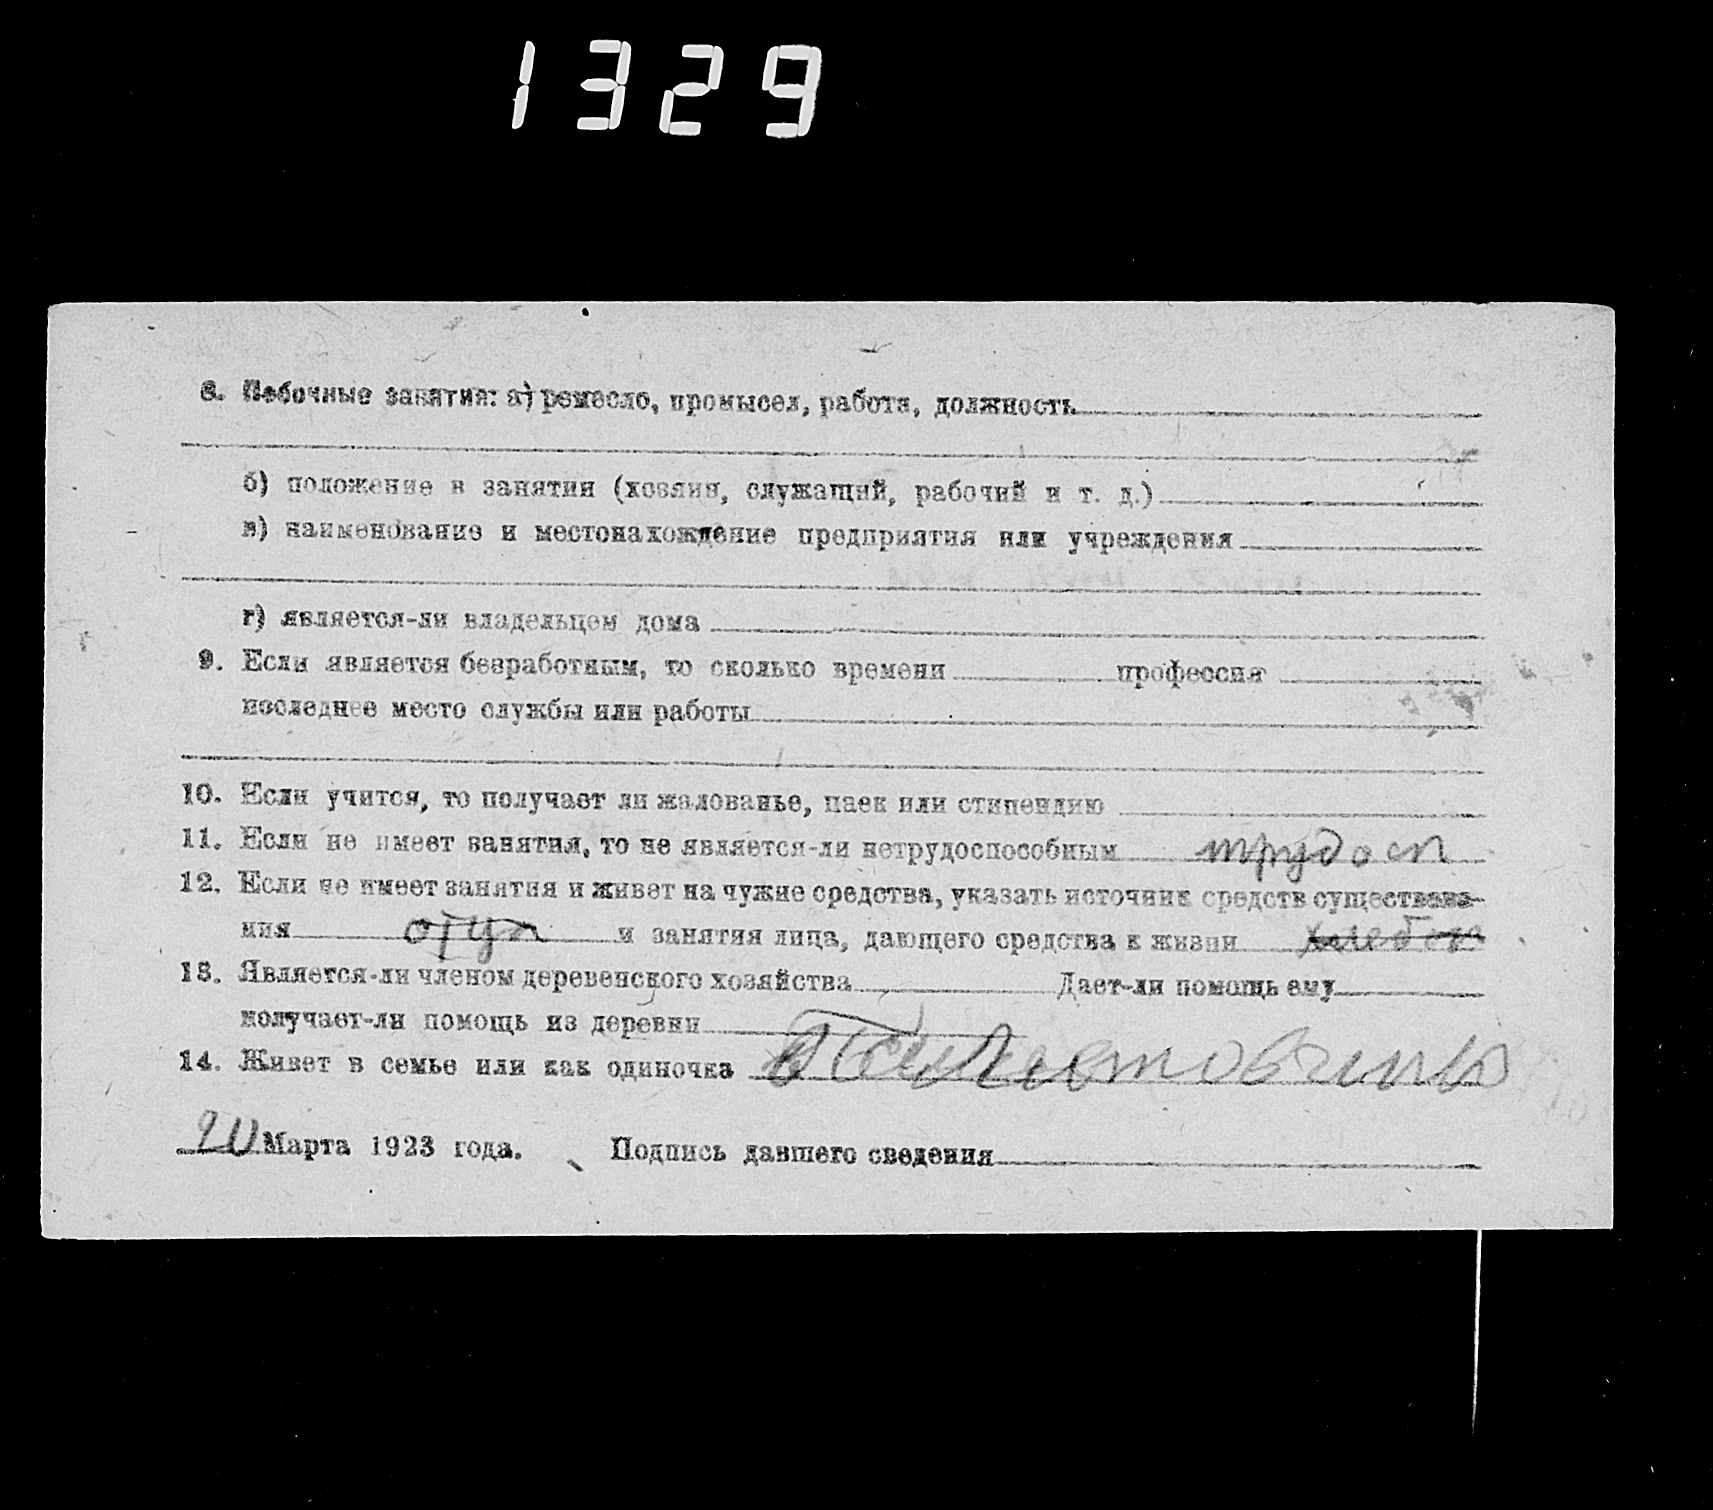 1329
8. Побочные занятия: а) ремесло, промысел, работа, должность
б) положение в занятии (хозяин, служащий, рабочий и т. д.)
в) наименование и местонахождение предприятия или учреждения
г) является-ли владельцем дома
9. Если является безработным, то сколько времени профессия
последнее место службы или работы
10. Если учится, то получает ли жалованье, паек или стипендию
11. Если не имеет занятия, то не является-ли нетрудоспособным трудосп
12. Если не имеет занятия и живет на чужие средства, указать источник средств существова-
ния отца и занятия лица, дающего средства к жизни
13. Является-ли членом деревенского хозяйства Дает-ли помощь ему
получает-ли помощь из деревни
14. Живет в семье или как одиночка
20 Марта 1923 года. Подпись давшего сведения